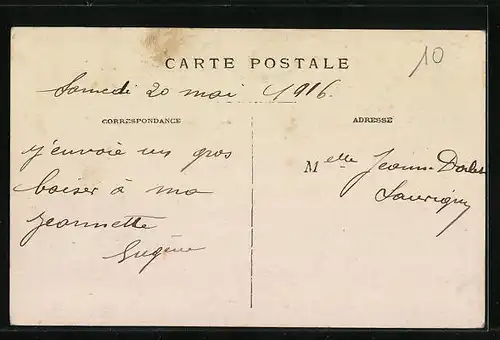 10
CARTE POSTALE
Samedi 20 mai 1916.
CORRESPONDANCE
ADRESSE
j'envoie un gros
baiser à ma
Jeannette
Eugène
Melle Jeanne